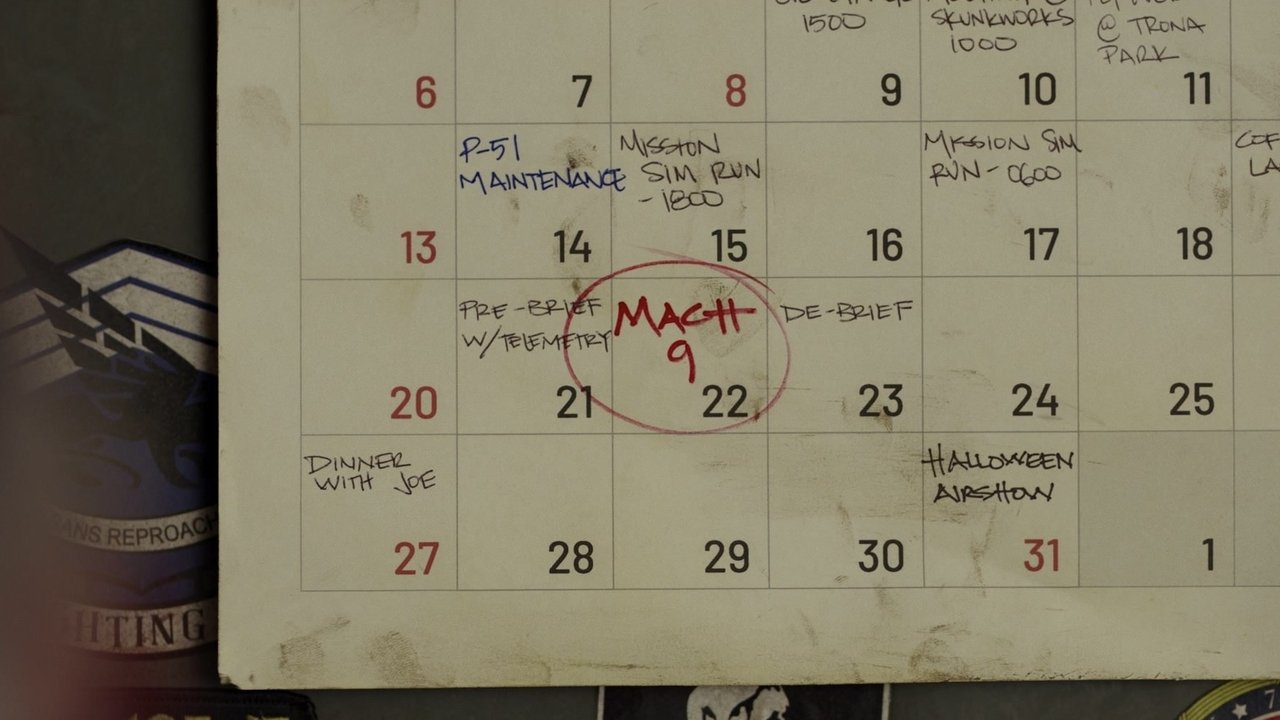 1500
SKUNKWORKS
1000
@ TRONA
PARK
6 7 8 9 10 11
P-51
MAINTENANCE
MISSION
SIM RUN
- 1800
MISSION SIM
RUN - 0600
13 14 15 16 17 18
PRE-BRIEF
W/TELEMETRY
MACH
9
DE-BRIEF
20 21 22 23 24 25
DINNER
WITH JOE
HALLOWEEN
AIRSHOW
27 28 29 30 31 1
ANS REPROACH
HTING
7